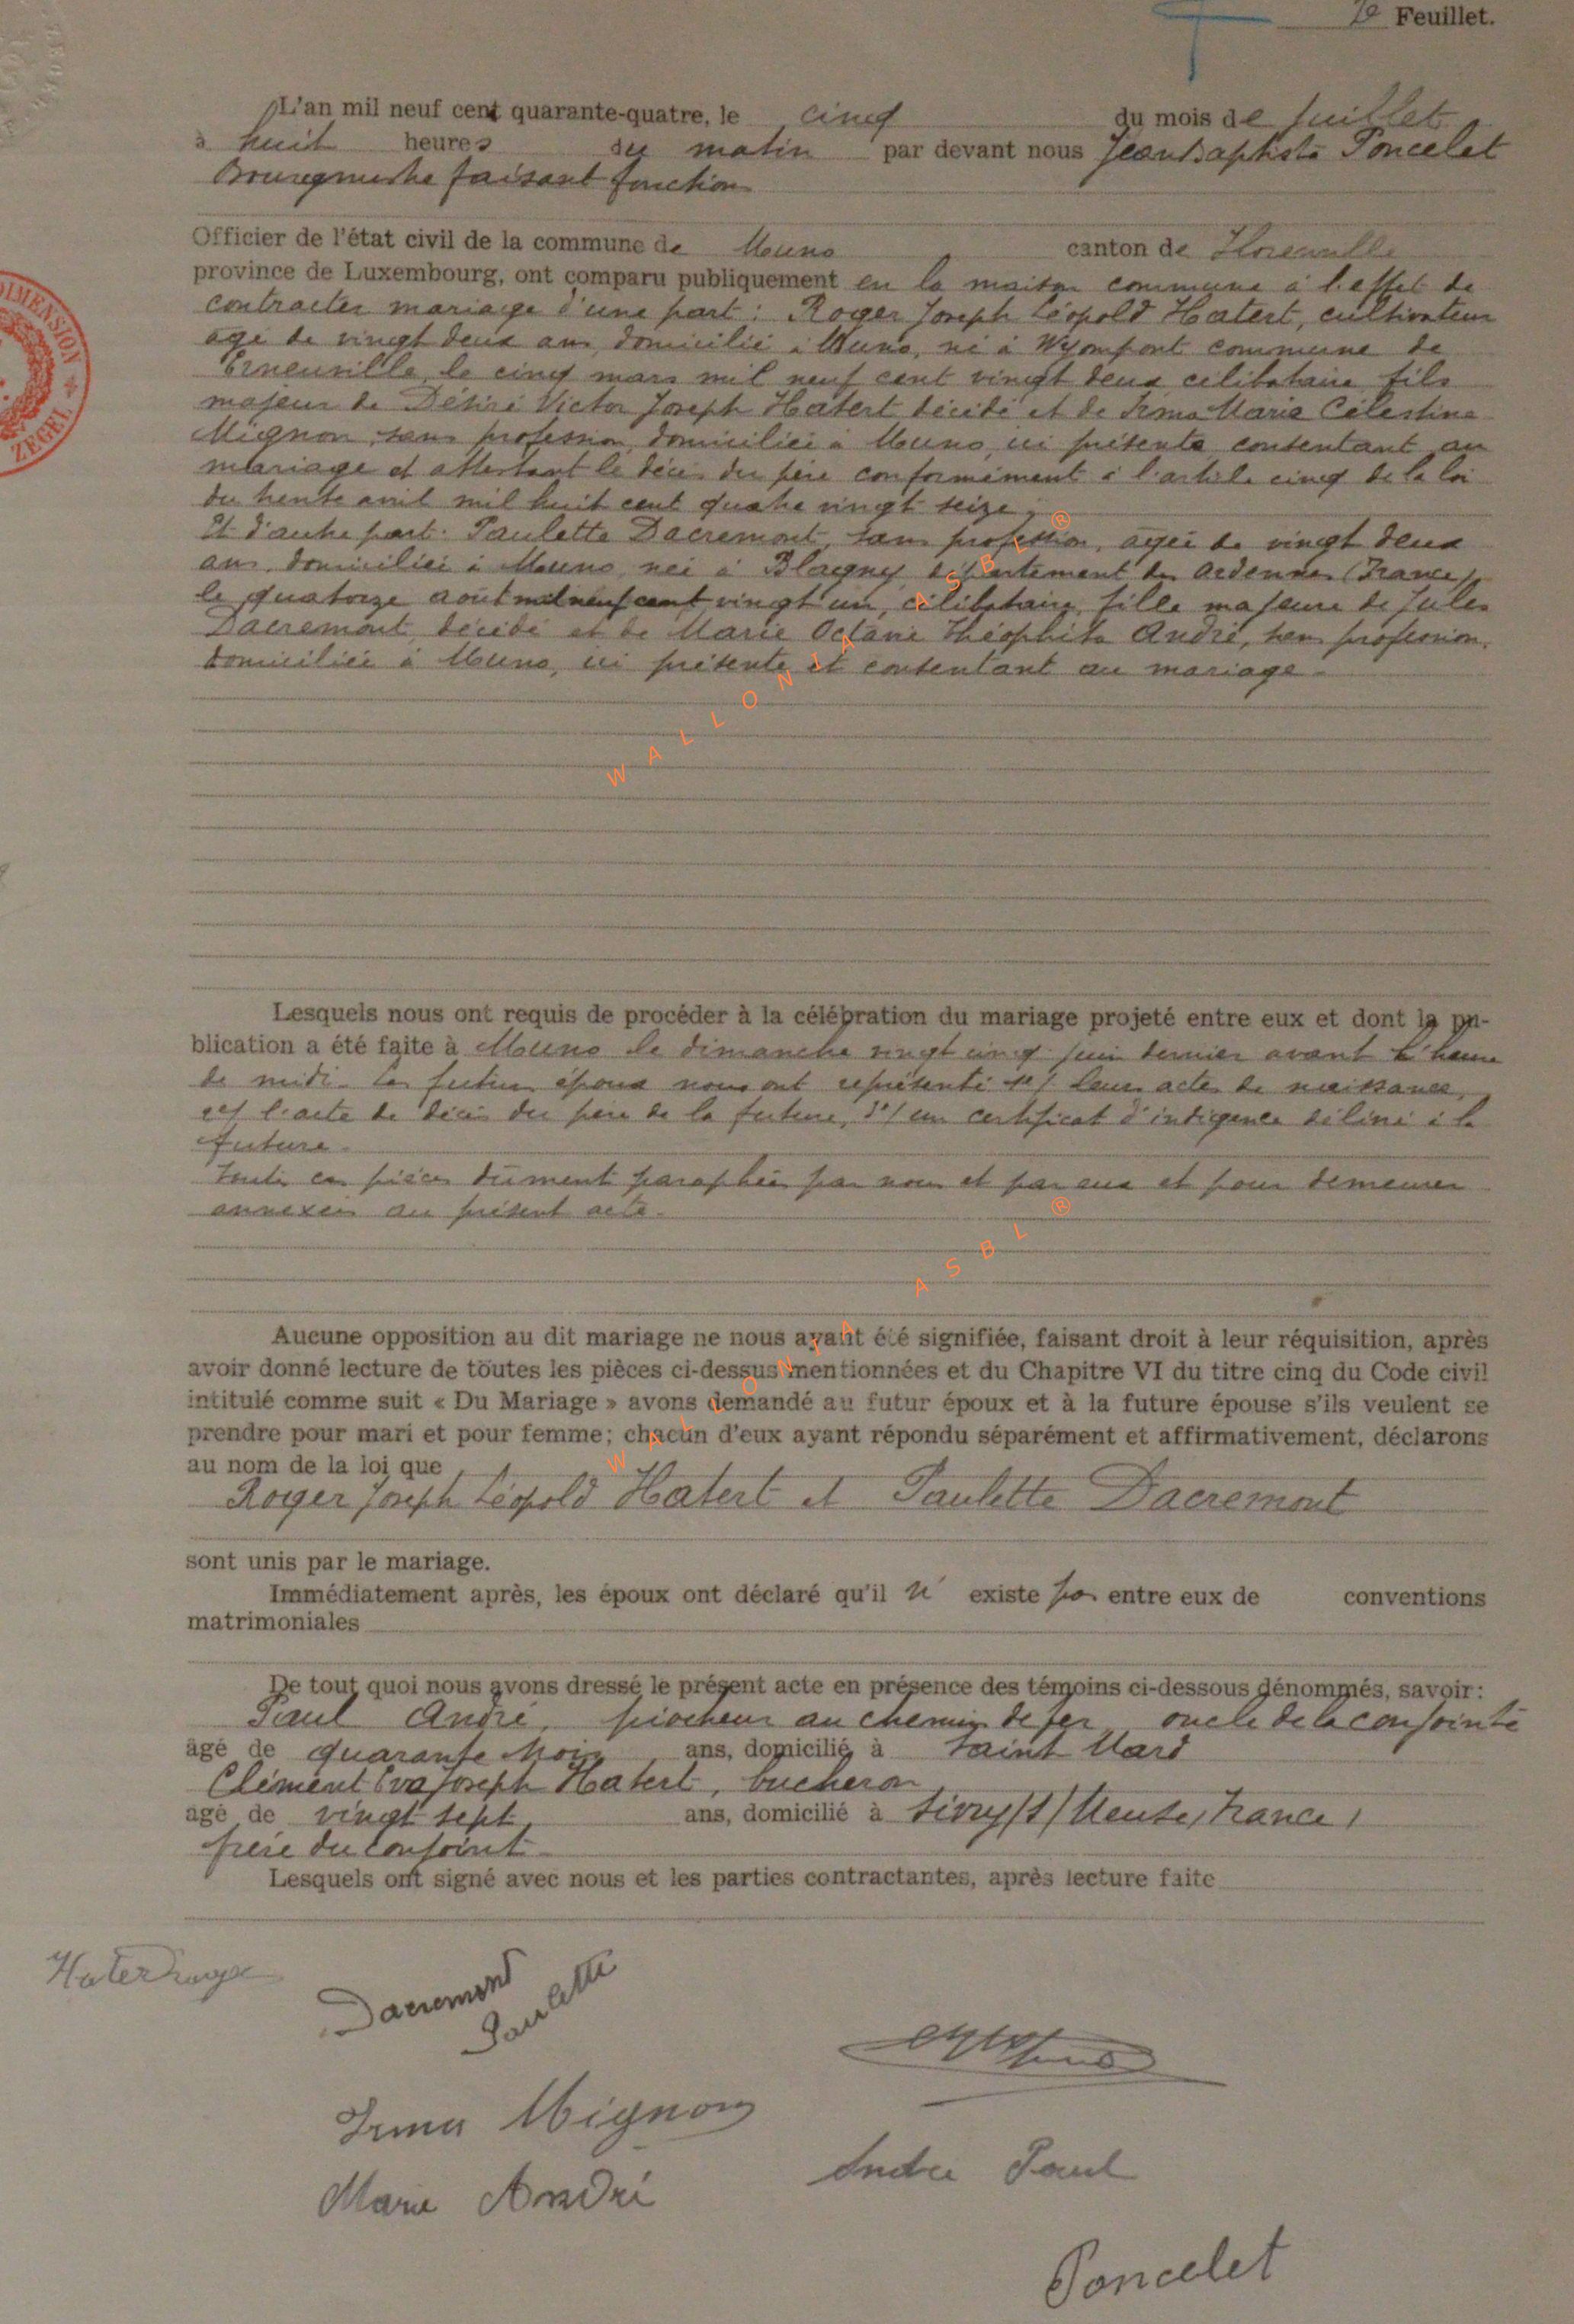 7e Feuillet.
L'an mil neuf cent quarante-quatre, le cinq du mois de Juillet
à huit heures du matin par devant nous Jean Baptiste Poncelet
Bourgmestre faisant fonction
Officier de l'état civil de la commune de Muno canton de Florenville
province de Luxembourg, ont comparu publiquement en la maison commune à l'effet de
contracter mariage d'une part : Roger Joseph Léopold Hatert, cultivateur
agé de vingt deux ans, domicilié à Muno, né à Wyompont commune de
Erneuville, le cinq mars mil neuf cent vingt deux célibataire fils
majeur de Désiré Victor Joseph Hatert décédé et de Irma Marie Célestine
Mignon, sans profession, domiciliée à Muno, ici présente consentant au
mariage et attestant le décès du père conformément à l'article cinq de la loi
du trente avril mil huit cent quatre vingt seize ;
Et d'autre part : Paulette Dacremont, sans profession, agée de vingt deux
ans, domiciliée à Muno, née à Blagny département des Ardennes (France)
le quatorze aout mil neuf cent vingt un, célibataire, fille majeure de Jules
Dacremont, décédé et de Marie Octavie Théophile André, sans profession,
domiciliée à Muno, ici présente et consentant au mariage.
WALLONIA ASBL ®
Lesquels nous ont requis de procéder à la célébration du mariage projeté entre eux et dont la pu-
blication a été faite à Muno le dimanche vingt cinq juin dernier avant l'heure
de midi. Les futurs époux nous ont représenté 1°/ leurs actes de naissance,
2°/ l'acte de décès du père de la future, 3°/ un certificat d'indigence délivré à la
future.
Toutes ces pièces dûment paraphées par nous et par eux et pour demeurer
annexées au présent acte.
WALLONIA ASBL ®
Aucune opposition au dit mariage ne nous ayant été signifiée, faisant droit à leur réquisition, après
avoir donné lecture de toutes les pièces ci-dessus mentionnées et du Chapitre VI du titre cinq du Code civil
intitulé comme suit « Du Mariage » avons demandé au futur époux et à la future épouse s'ils veulent se
prendre pour mari et pour femme; chacun d'eux ayant répondu séparément et affirmativement, déclarons
au nom de la loi que
Roger Joseph Léopold Hatert et Paulette Dacremont
sont unis par le mariage.
Immédiatement après, les époux ont déclaré qu'il n' existe pas entre eux de conventions
matrimoniales
De tout quoi nous avons dressé le présent acte en présence des témoins ci-dessous dénommés, savoir :
Paul André, piocheur au chemin de fer, oncle de la conjointe
âgé de quarante trois ans, domicilié à Saint Mard
Clément Eva Joseph Hatert, bucheron,
âgé de vingt sept ans, domicilié à Sivry/s/Meuse (France)
frère du conjoint.
Lesquels ont signé avec nous et les parties contractantes, après lecture faite
Hatert Roger
Dacremont
Paulette
Irma Mignon
Marie André
André Paul
Poncelet
DIMENSION
ZEGEL